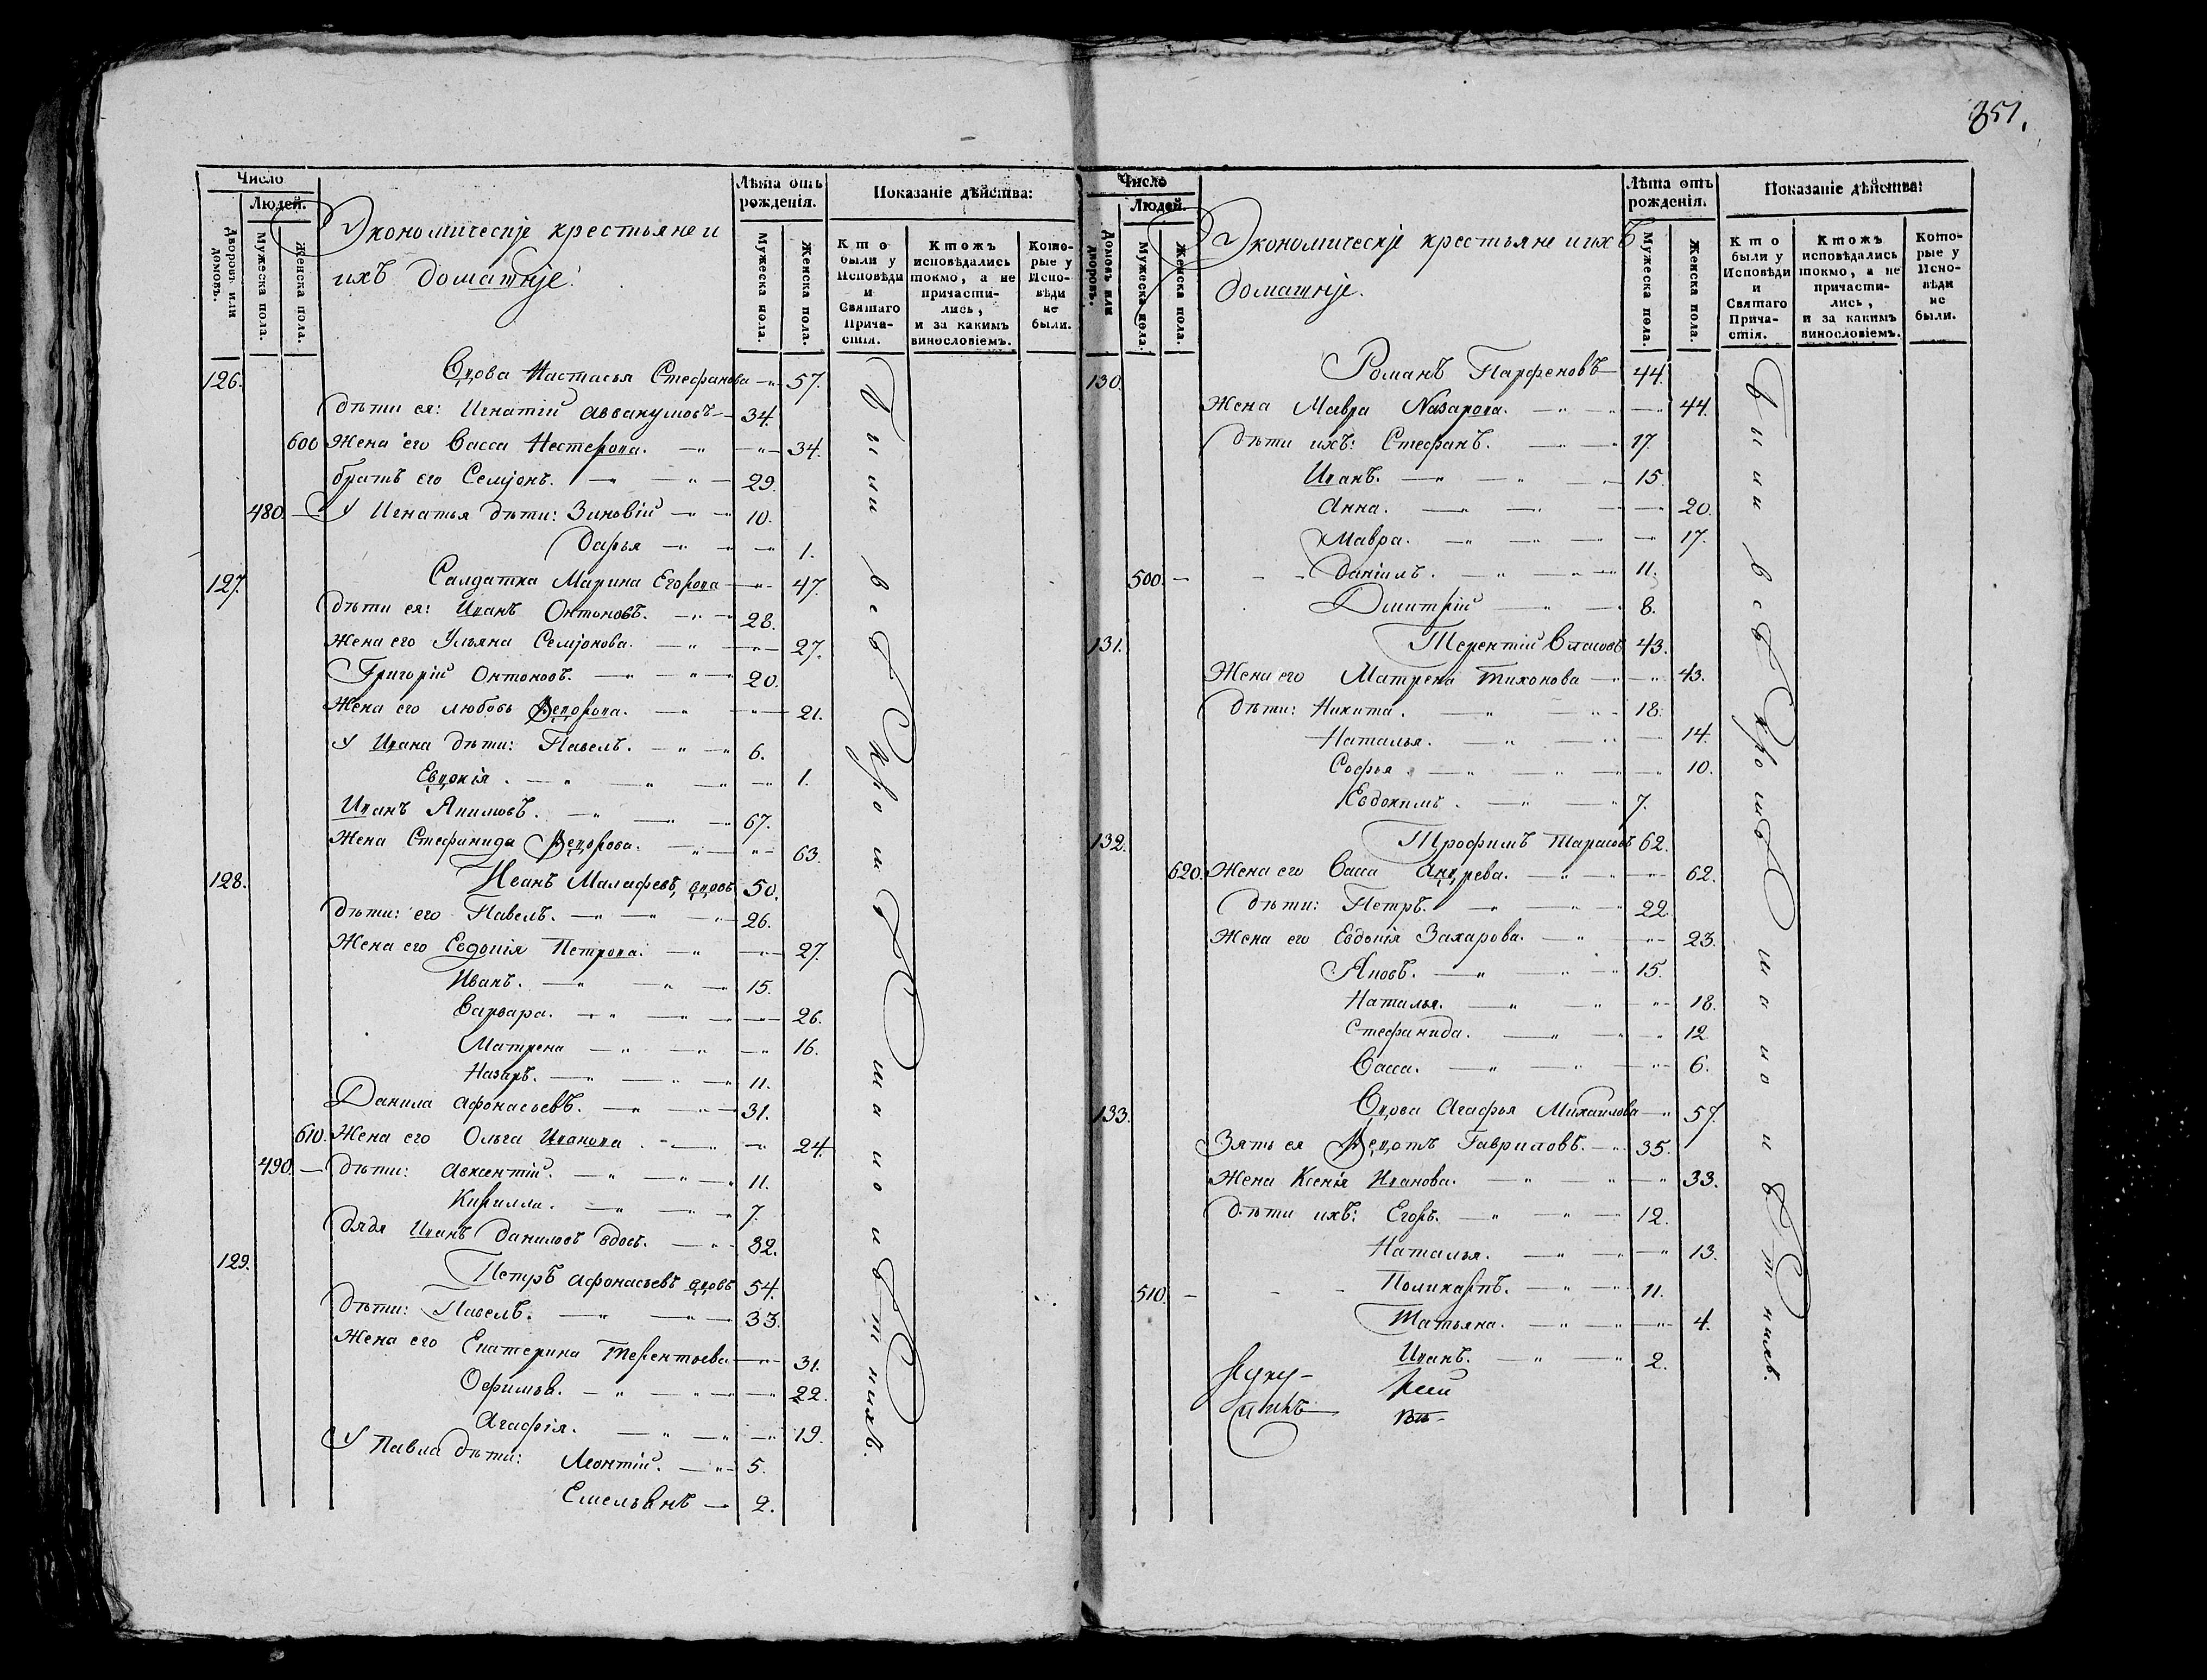 351.
Число
Людей.
Дворовъ или домовъ.
Мужеска пола.
Женска пола.
Экономическіе крестьяне и
ихъ домашніе.
Лѣта отъ рожденія.
Мужеска пола.
Женска пола.
Показаніе дѣйства:
Кто были у Исповѣди и Святаго Причастія.
Ктожъ исповѣдались токмо, а не причастились, и за какимъ винословіемъ.
Которые у Исповѣди не были.
126. Вдова Настасья Стефанова — 57.
дѣти ея: Игнатій Аввакумовъ — 34.
600 Жена его Васса Нестерова. — 34.
братъ его Семіонъ. — 29.
480. — У Игнатья дѣти: Зиновій — 10.
Дарья — 1.
127. Салдатка Марина Егорова — 47.
дѣти ея: Иванъ Онтоновъ. — 28.
Жена его Ульяна Семіонова. — 27.
Григорій Онтоновъ. — 20.
Жена его любовь Ѳедорова. — 21.
У Ивана дѣти: Павелъ. — 6.
Евдокія. — 1.
Иванъ Якимовъ. — 67.
Жена Стефанида Ѳедорова. — 63.
128. Иванъ Малафеевъ, вдовъ 50.
дѣти: его Павелъ. — 26.
Жена его Евдокія Петрова. — 27.
Иванъ. — 15.
Варвара. — 26.
Матрена — 16.
Назаръ. — 11.
Данила Афонасьевъ. — 31.
610. Жена его Ольга Иванова. — 24.
490. — дѣти: Авксентій. — 11.
Кирилла. — 7.
дядя Иванъ Даниловъ вдовъ. — 82.
129. Петръ Афонасьевъ вдовъ 54.
дѣти: Павелъ. — 33.
Жена его Екатерина Терентьева — 31.
Офимья. — 22.
Агафія. — 19.
У Павла дѣти: Леонтій. — 5.
Емельянъ — 2.
Были всѣ кромѣ малолѣтнихъ.
Число
Людей.
Домовъ или дворовъ.
Мужеска пола.
Женска пола.
Экономическіе крестьяне и ихъ
домашніе.
Лѣта отъ рожденія.
Мужеска пола.
Женска пола.
Показаніе дѣйства:
Кто были у Исповѣди и Святаго Причастія.
Ктожъ исповѣдались токмо, а не причастились, и за какимъ винословіемъ.
Которые у Исповѣди не были.
130. Романъ Парфеновъ — 44.
Жена Мавра Назарова. — 44.
дѣти ихъ: Стефанъ. — 17.
Иванъ. — 15.
Анна. — 20.
Мавра. — 17.
500. — Даніилъ. — 11.
Дмитрій — 8.
131. Терентій Власовъ 43.
Жена его Матрена Тихонова — 43.
дѣти: Никита. — 18.
Наталья. — 14.
Софья. — 10.
Евдокимъ. — 7.
132. Трофимъ Тарасовъ 62.
620. Жена его Васса Андрева. — 62.
дѣти: Петръ. — 22.
Жена его Евдокія Захарова. — 23.
Яковъ. — 15.
Наталья. — 18.
Стефанида. — 12
Васса. — 6.
133. Вдова Агафья Михаилова — 57.
Зять ея Ѳедотъ Гавриловъ. — 35.
Жена Ксенія Иванова. — 33.
дѣти ихъ: Егоръ. — 12.
Наталья. — 13.
510. — Поликарпъ. — 11.
Татьяна. — 4.
Иванъ. — 2.
Были всѣ кромѣ малолѣтнихъ.